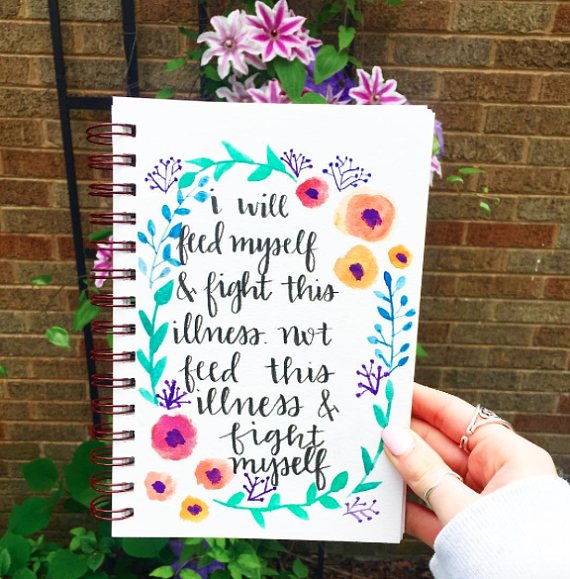 i will
feed myself
& fight this
illness. not
feed this
illness &
fight
myself